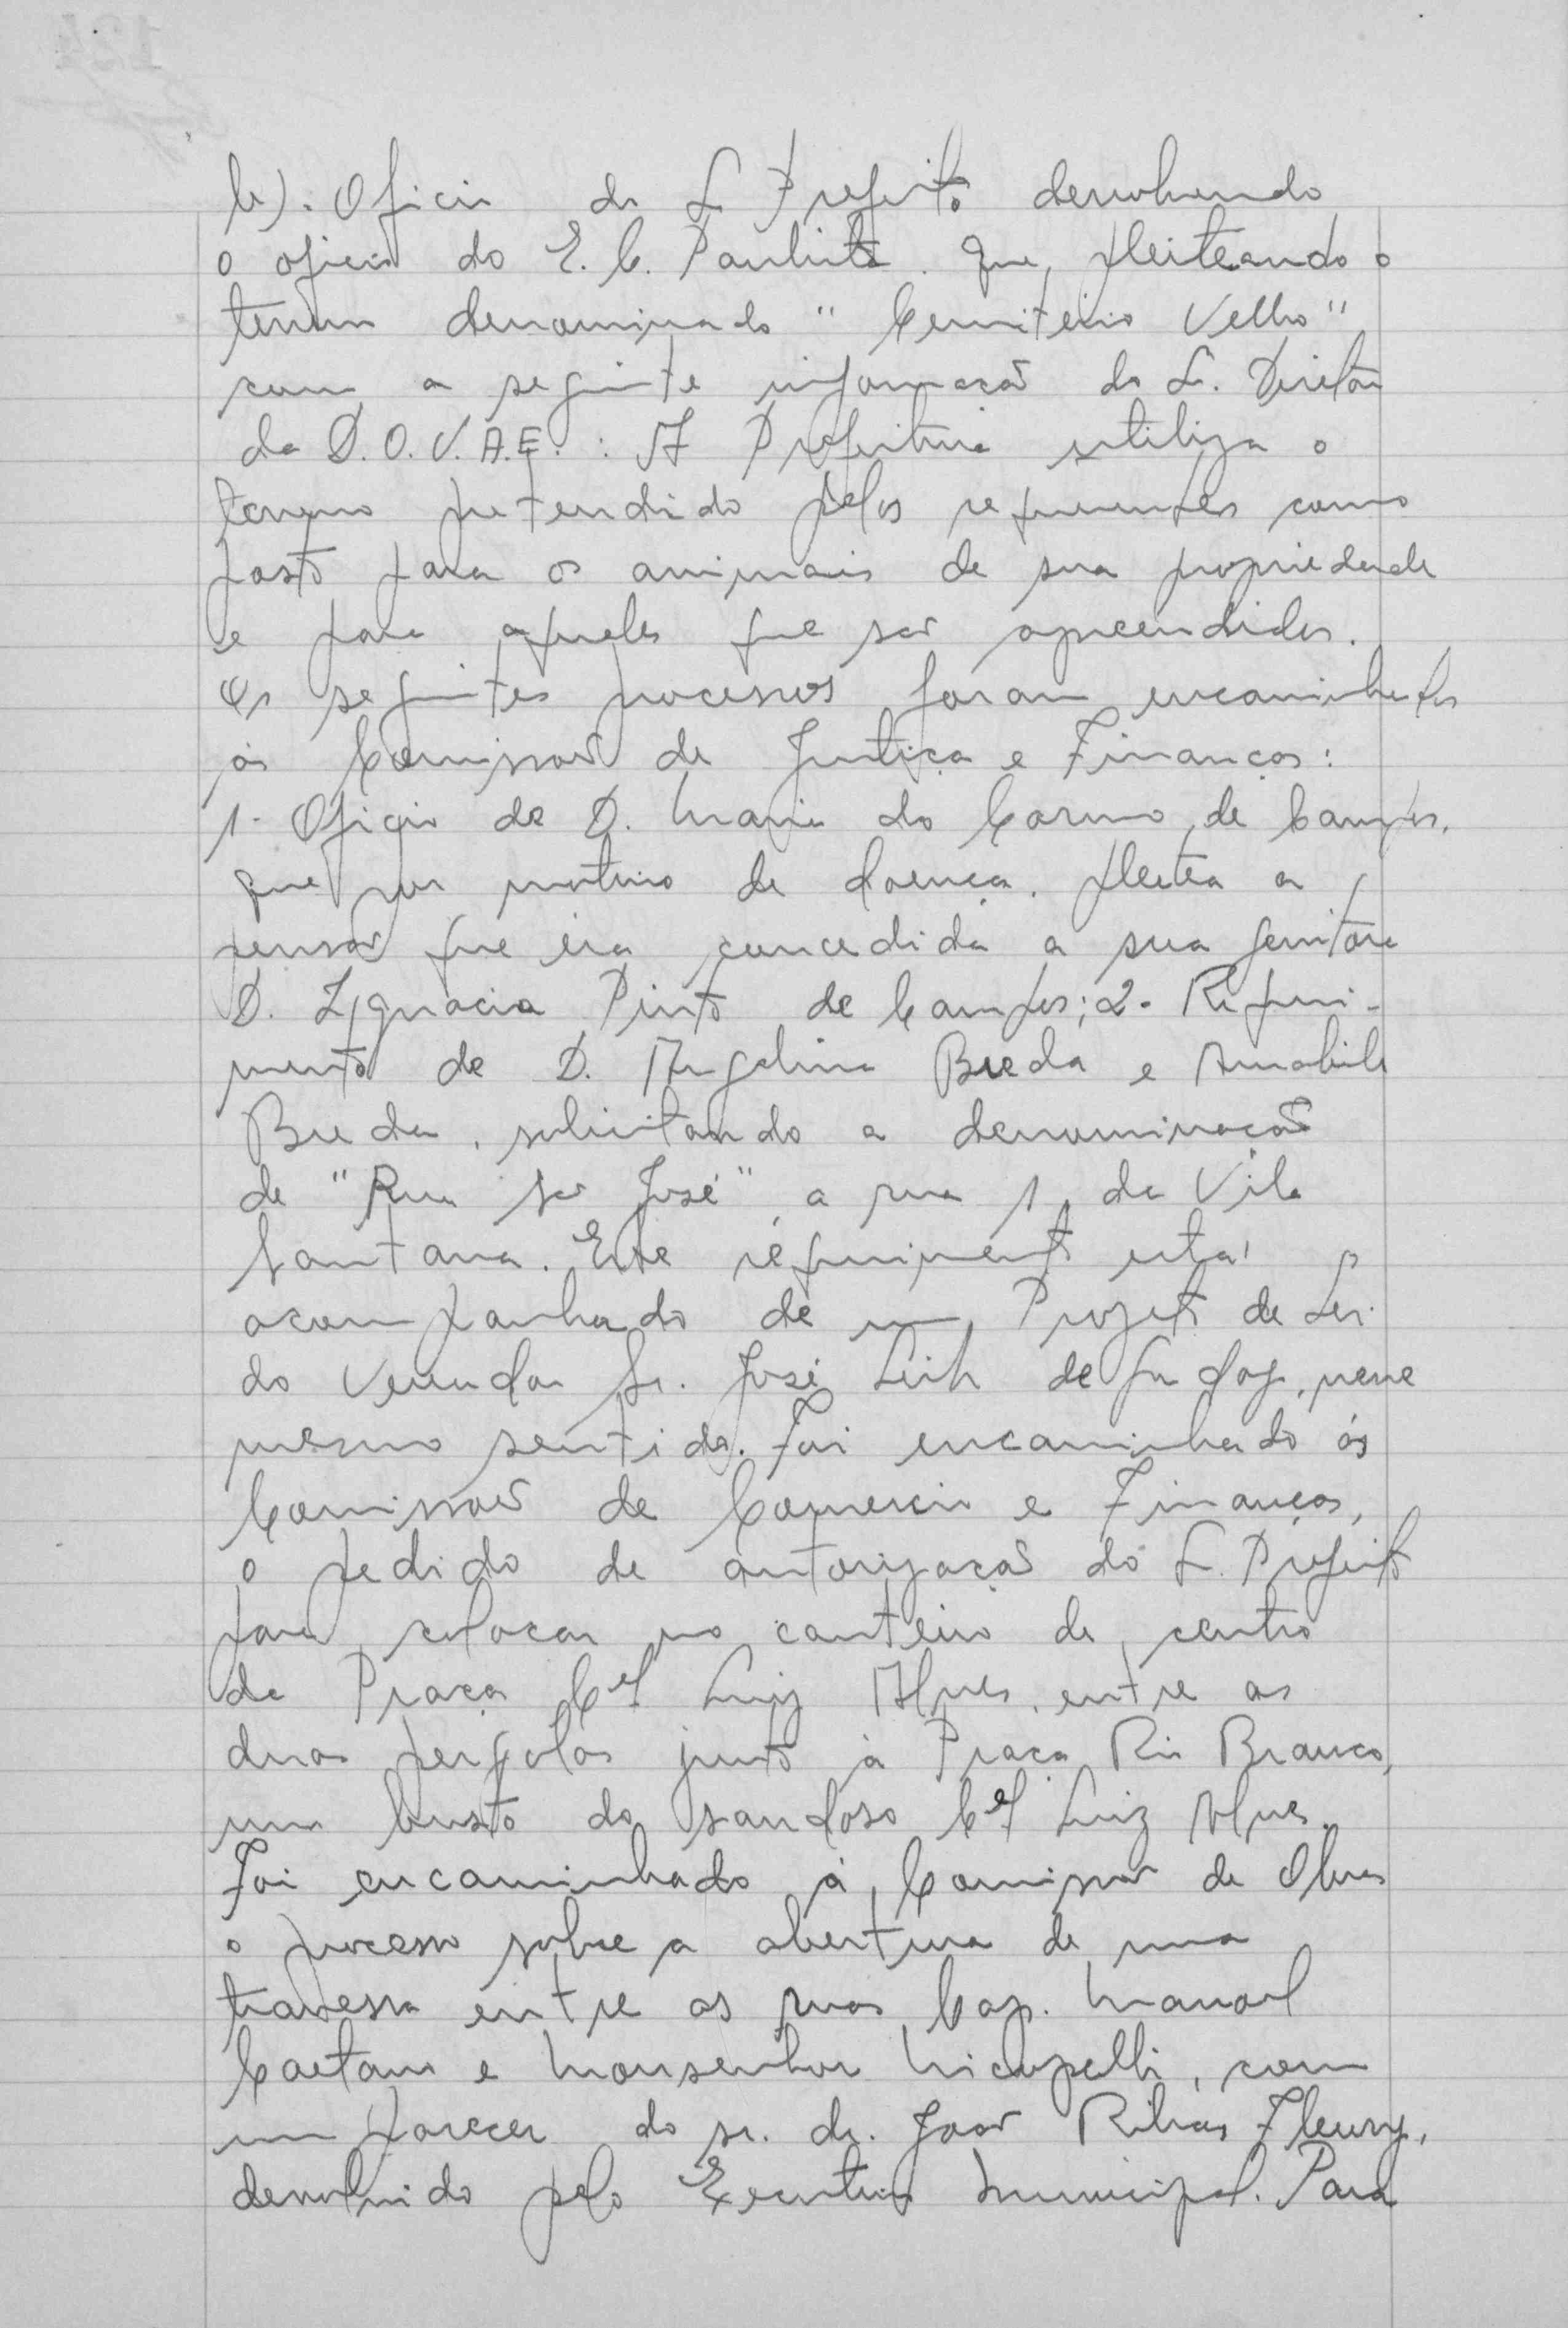 b). Oficio do S. Prefeito devolvendo
o oficio do E. C. Paulista. que, pleiteando o
terreno denominado "Cemitério Velho"
com a seguinte informação do S. Diretor
da D.O.V.A.E.: A Prefeitura utiliza o
terreno pretendido pelos requerentes como
pasto para os animais de sua propriedade
e para aqueles que são apreendidos.
Os seguintes processos foram encaminhados
ás Comissões de Justiça e Finanças:
1. Oficio de D. Maria do Carmo de Campos,
que por motivo de doença. pleitea a
pensão que éra concedida a sua genitora
D. Ignacia Pinto de Campos; 2. Requeri-
mento de D. Angelina Breda e Amabile
Breda, solicitando a denominação
de "Rua São José" a rua 1, da Vila
Santana. Este requerimento está
acompanhado de um Projeto de Lei
do Vereador Sr. José Leite de Godoy, nesse
mesmo sentido. Foi encaminhado ás
Comissões de Comercio e Finanças,
o pedido de autorização do S. Prefeito
para colocar no canteiro do centro
da Praça Cel. Luiz Alves, entre as
duas pergolas junto à Praça Rio Branco,
um busto do saudoso Cel. Luiz Alves.
Foi encaminhado á Comissão de Obras
o processo sobre a abertura de uma
travessa entre as ruas Cap. Manoel
Caetano e Monsenhor Nicopelli, com
um parecer do sr. dr. João Ribas Fleury,
devolvido pelo Executivo Municipal. Para